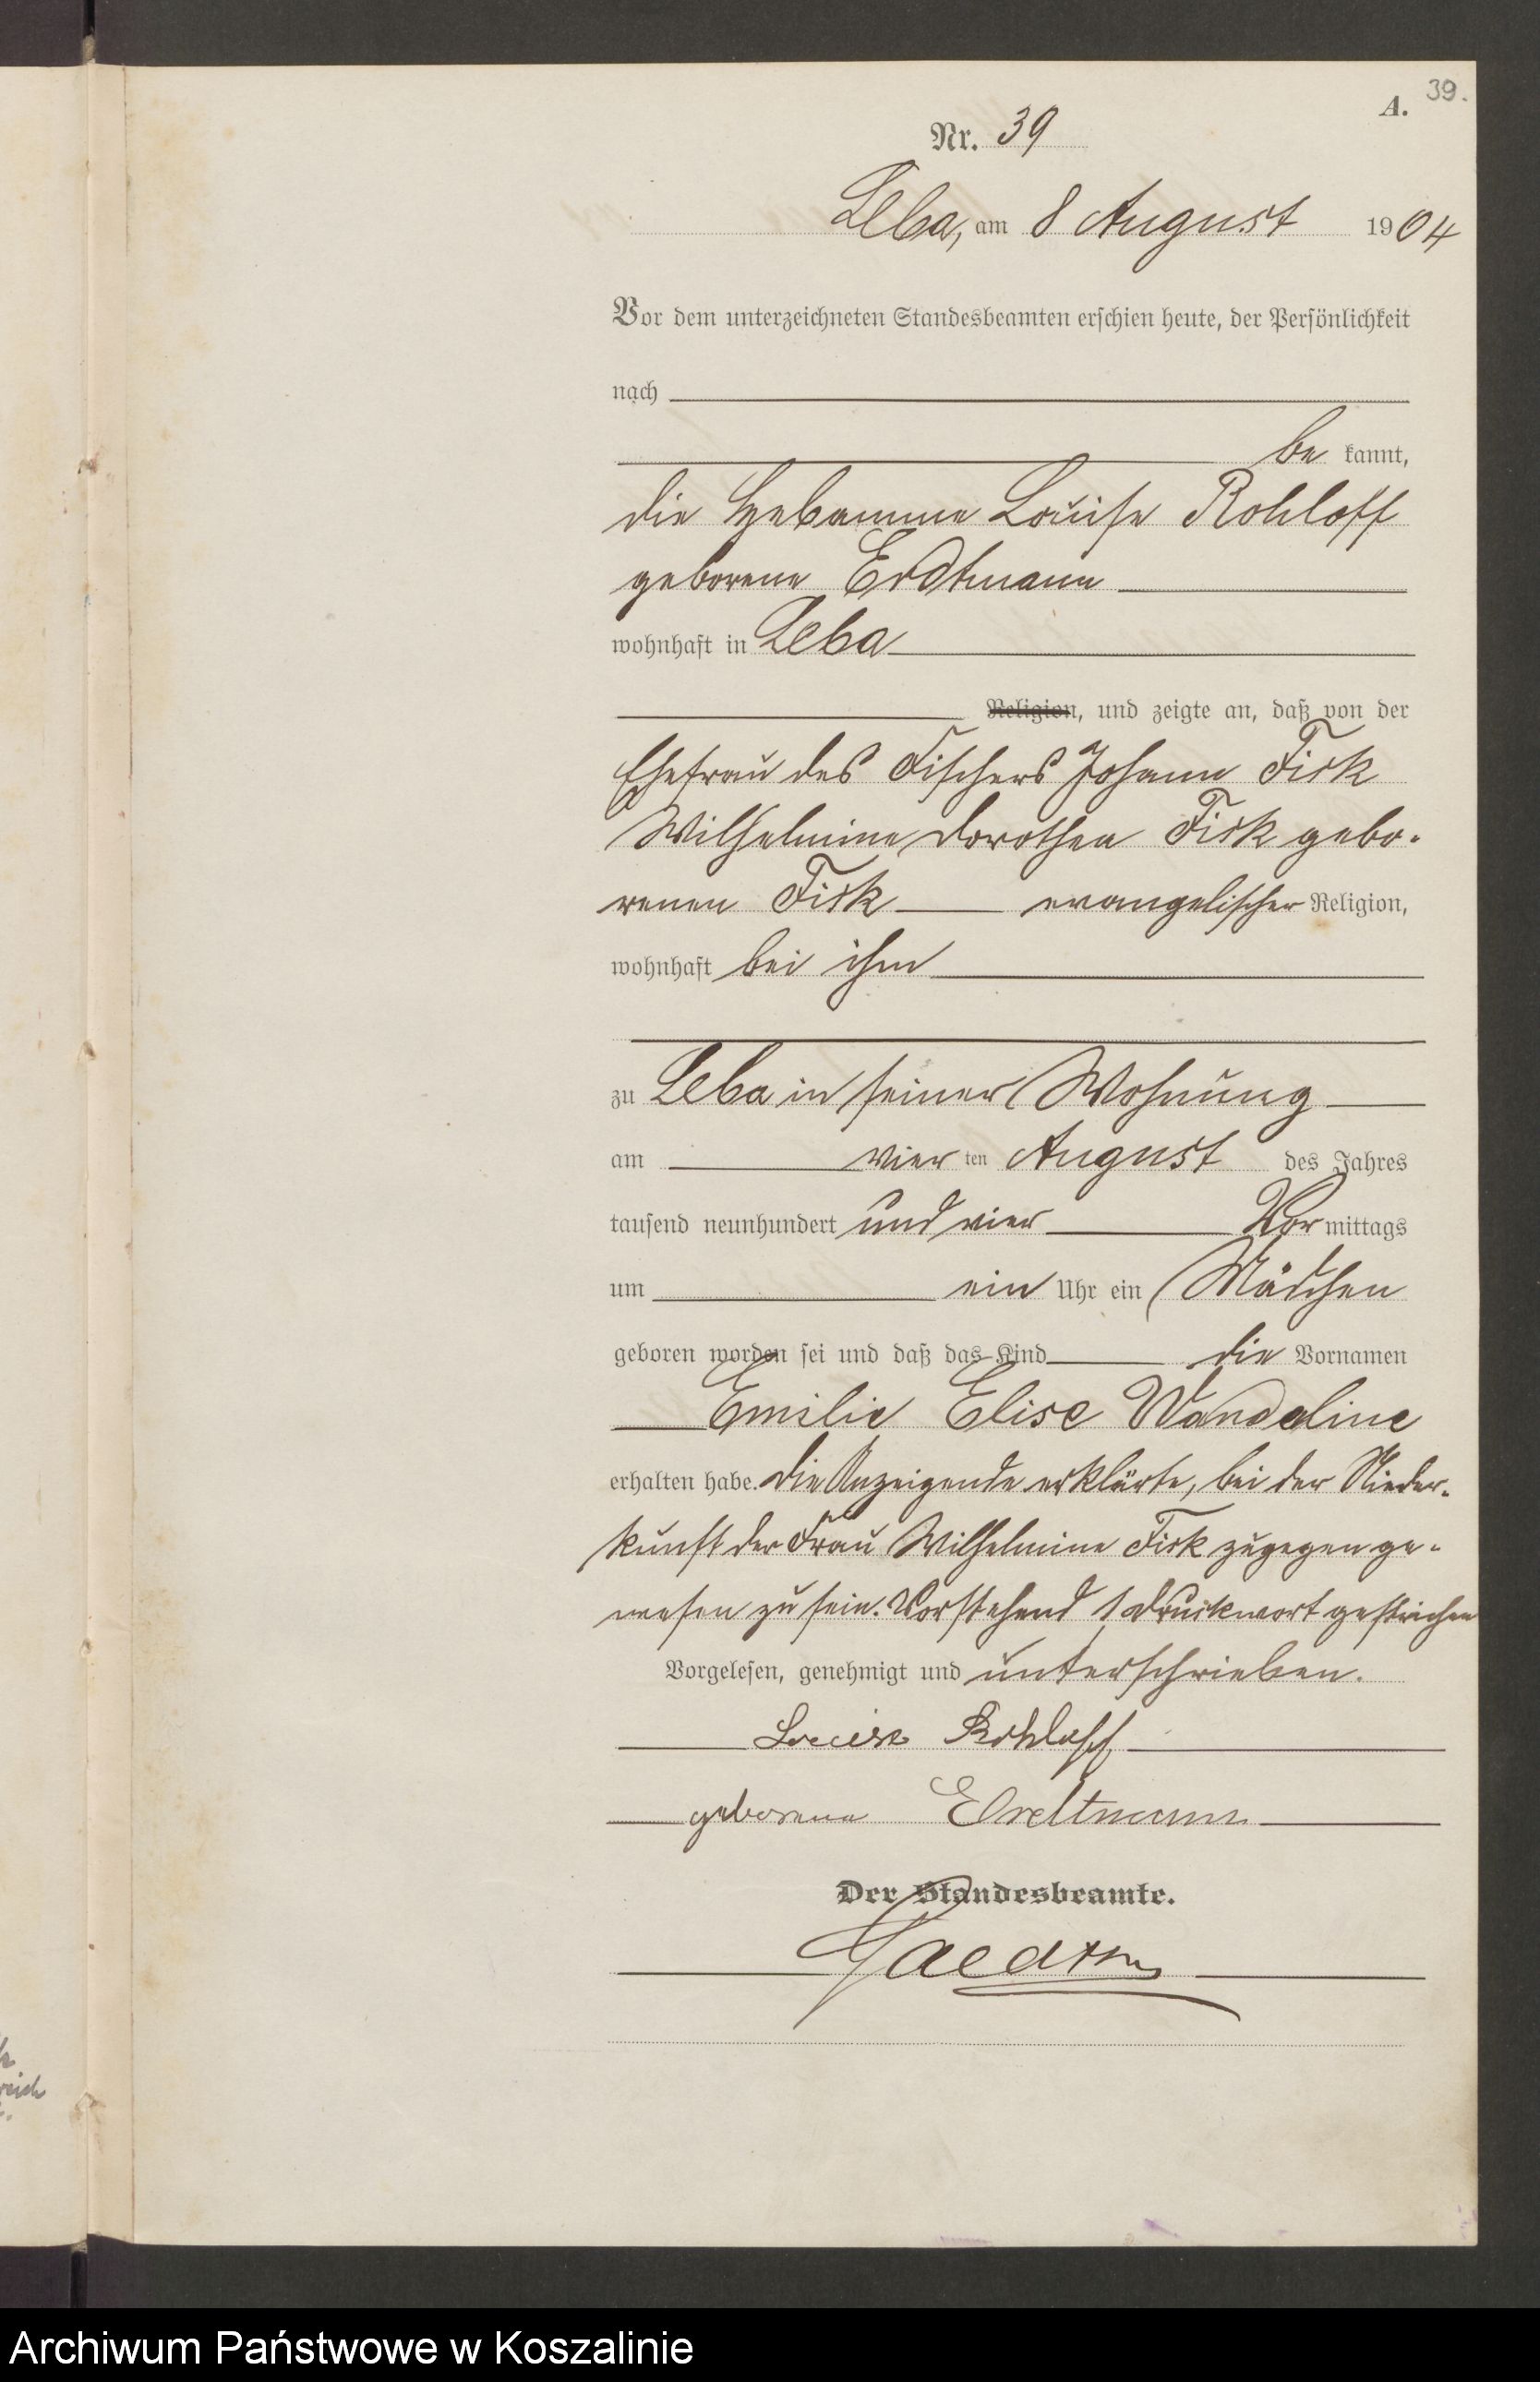 39.
A.
Nr. 39
Leba, am 8 August 1904
Vor dem unterzeichneten Standesbeamten erschien heute, der Persönlichkeit
nach
be kannt,
die Hebamme Louise Rohloff
geborene Erdtmann
wohnhaft in Leba
Religion, und zeigte an, daß von der
Ehefrau des Fischers Johann Fick
Wilhelmine Dorothea Fick gebo-
renen Fick evangelischer Religion,
wohnhaft bei ihm
zu Leba in seiner Wohnung
am vier ten August des Jahres
tausend neunhundert und vier Vor mittags
um ein Uhr ein Mädchen
geboren worden sei und daß das Kind die Vornamen
Emilie Elise Wandaline
erhalten habe. Die Anzeigende erklärte, bei der Nieder-
kunft der Frau Wilhelmine Fick zugegen ge-
wesen zu sein. Vorstehend 1 Druckwort gestrichen
Vorgelesen, genehmigt und unterschrieben.
Louise Rohloff
geborene Erdtmann
Der Standesbeamte.
Archiwum Państwowe w Koszalinie